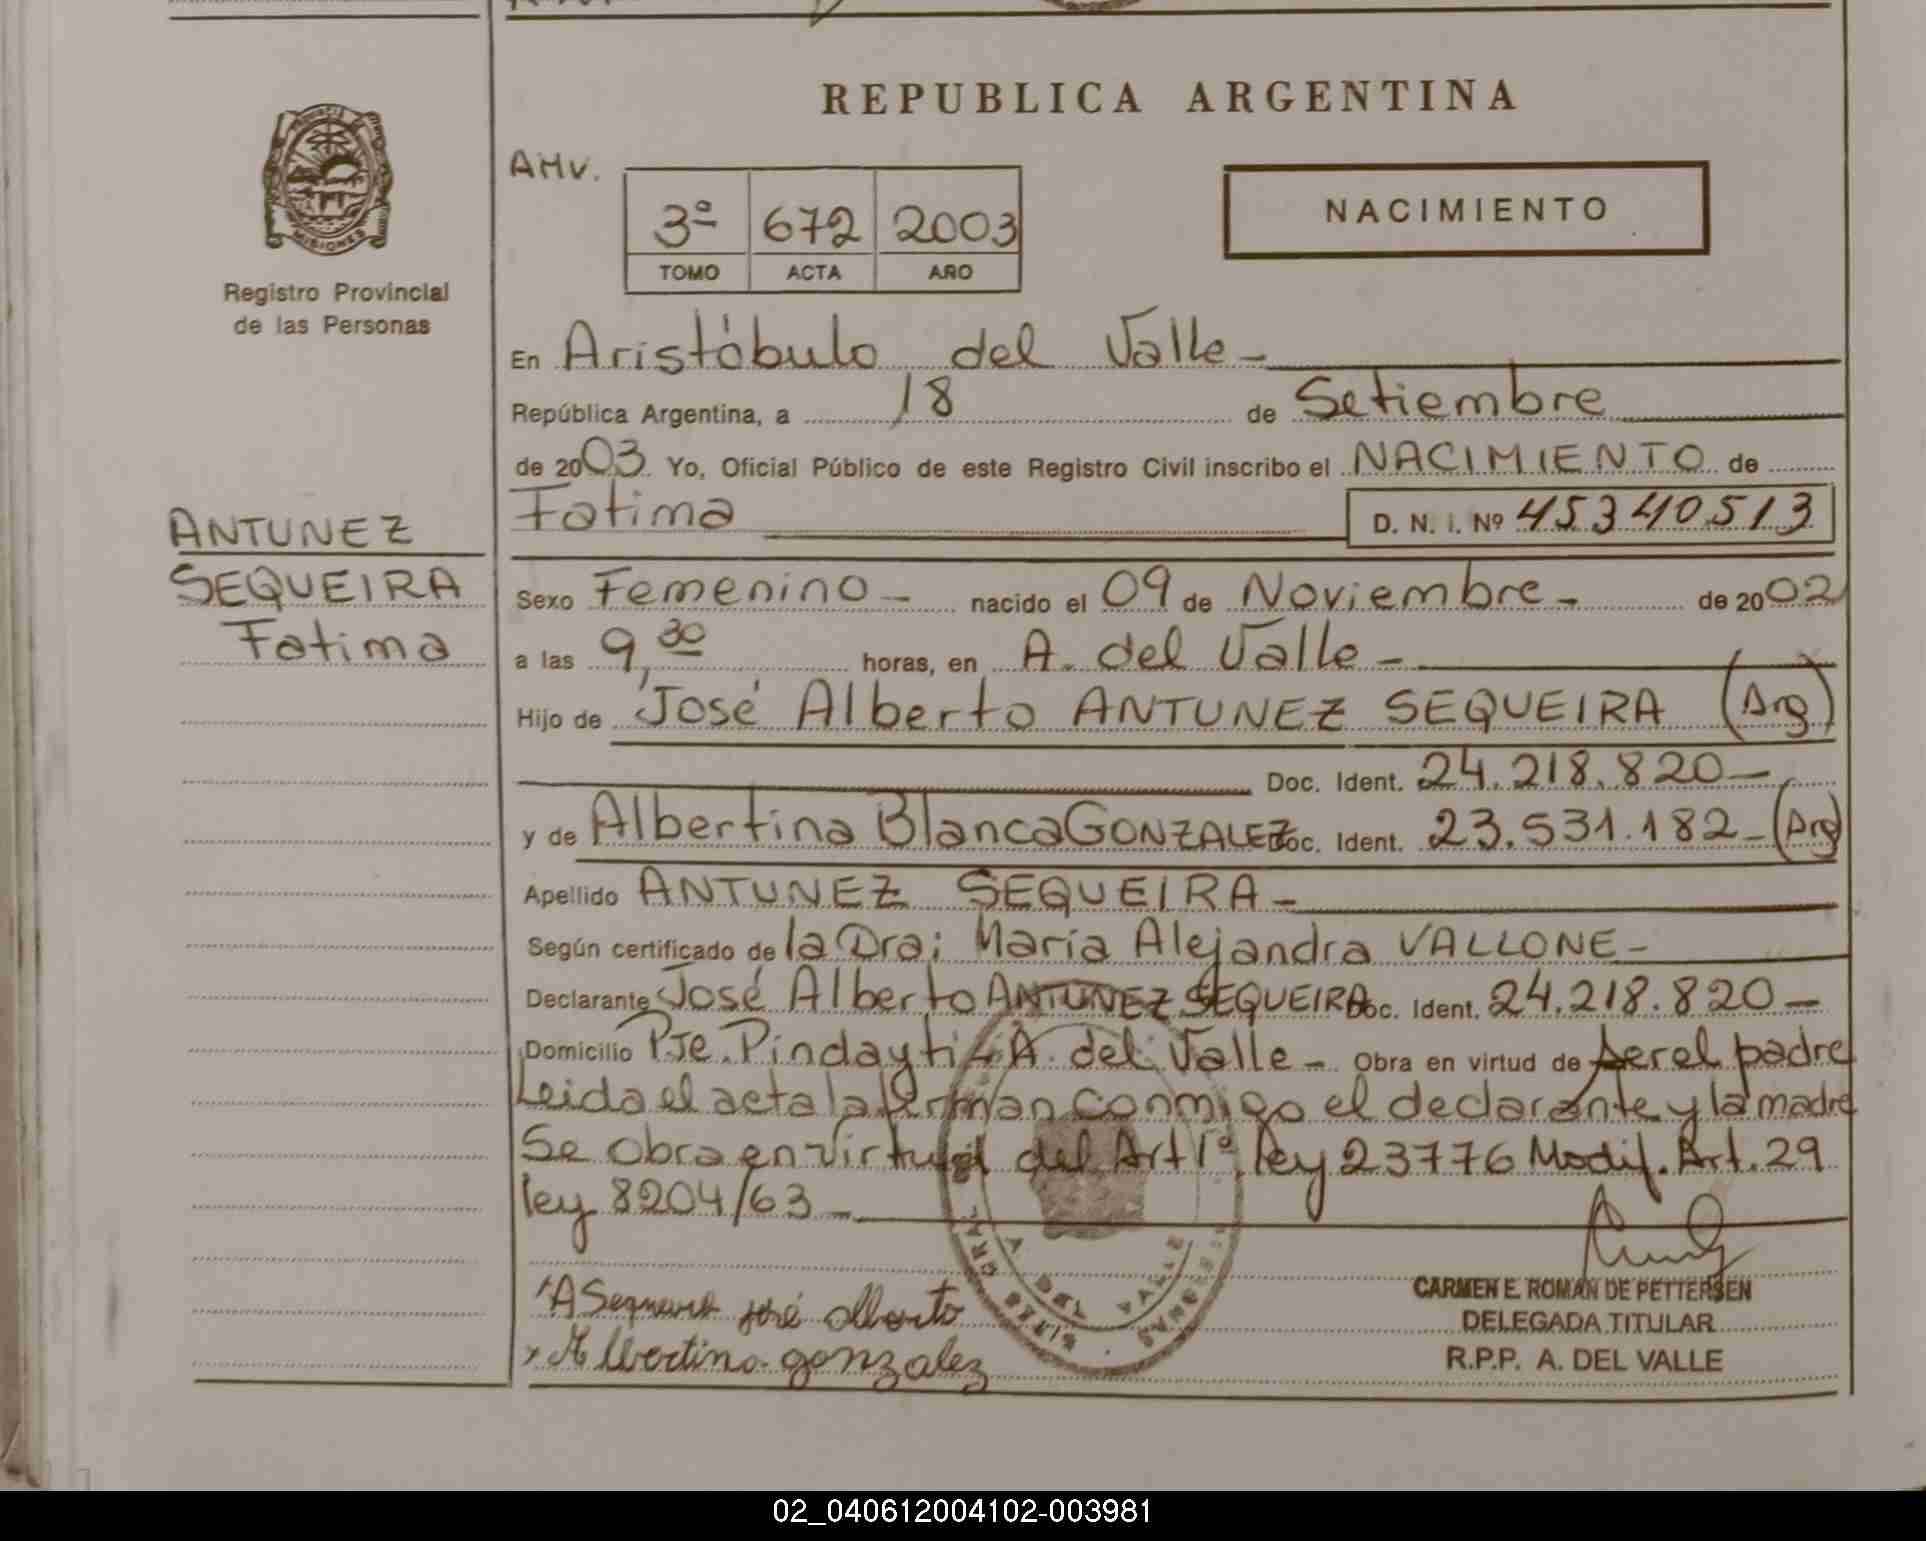 REPUBLICA ARGENTINA
AHV.
3ª 672 2003
TOMO ACTA AÑO
NACIMIENTO
MISIONES
Registro Provincial
de las Personas
ANTUNEZ
SEQUEIRA
Fatima
En Aristóbulo del Valle -
República Argentina, a 18 de Setiembre
de 2003. Yo, Oficial Público de este Registro Civil inscribo el NACIMIENTO de
Fatima D. N. I. Nº 45340513
Sexo Femenino - nacido el 09 de Noviembre - de 2002
a las 9,30 horas, en A. del Valle -
Hijo de José Alberto ANTUNEZ SEQUEIRA (Arg)
Doc. Ident. 24.218.820 -
y de Albertina Blanca GONZALEZ Doc. Ident. 23.531.182 - (Arg)
Apellido ANTUNEZ SEQUEIRA -
Según certificado de la Dra; María Alejandra VALLONE -
Declarante José Alberto ANTUNEZ SEQUEIRA Doc. Ident. 24.218.820 -
Domicilio Pje. Pindayti - A. del Valle - Obra en virtud de ser el padre
Leida el acta la firman conmigo el declarante y la madre
Se obra en virtud del Art 1º, ley 23776 Modif. Art. 29
ley 8204/63 -
A Sequeira José Alberto
Albertina gonzalez
CARMEN E. ROMAN DE PETTERSEN
DELEGADA TITULAR
R.P.P. A. DEL VALLE
02_040612004102-003981